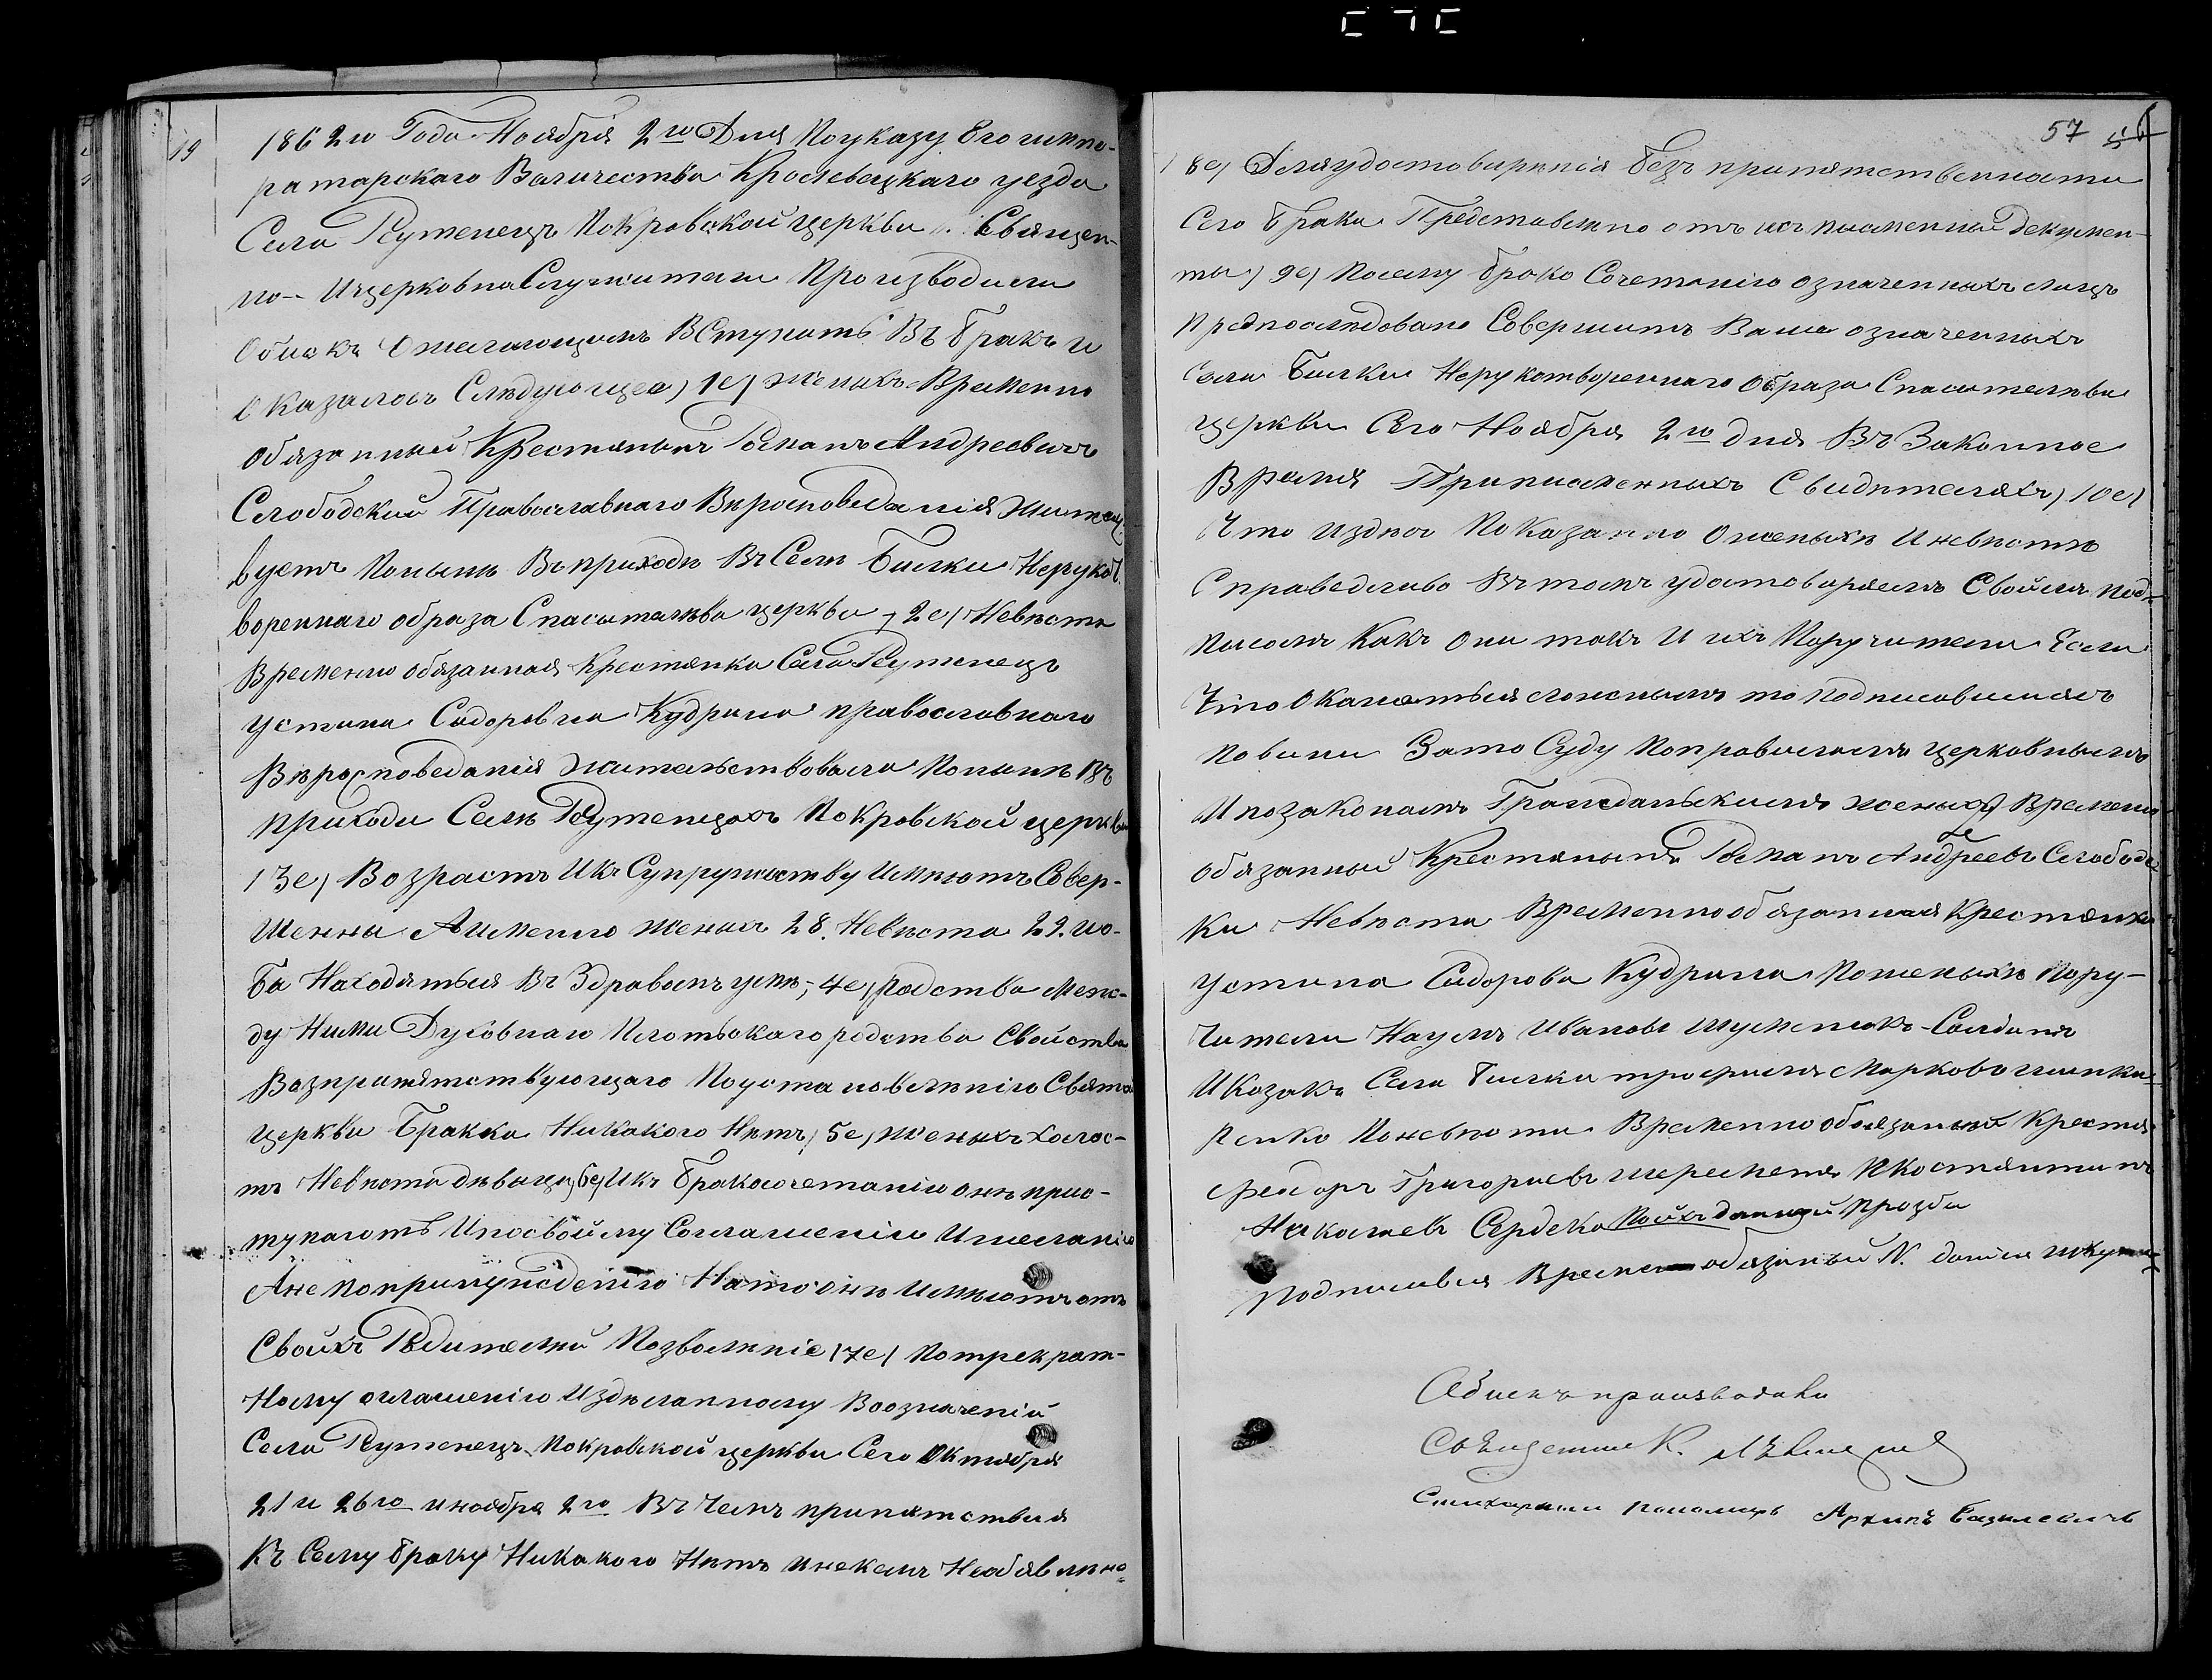 19
1862 го Года Ноября 2го Дня По указу Его импе-
раторскаго Величества Кролевецкаго уезда
Села Реутенецъ Покровской церкви Священ-
но- Ицерковно Служители Производили
Обискъ Ожелающемъ Вступить Въ бракъ и
Оказалось Следующее) 1е) Женихъ Временно
обязанный Крестянинъ Романъ Андреевичъ
Слободский Православнаго Вѣроисповеданія Жительс
вуетъ Понынѣ Въ приходѣ Въ Селѣ Билки Нерукот
вореннаго образа Спасителева церкви, 2е) Невѣста
Временно обязанная Крестянка Села Реутенецъ
Устина Сидоровна Кудрина православнаго
Вѣроисповеданія жительствовала Понынѣ Въ
приходи Селѣ Реутенцахъ Покровской церкви
13е) Возрастъ Икъ Супружеству Имѣютъ Совер-
шенны Аименно жених 28. Невѣста 22. ио-
ба Находяться Въ Здравомъ умѣ; 4е) Родства Меж-
ду Ними Духовнаго Плотьскаго родства Свойства
Возпрепятствующаго Поустановленію Свято
церкви Бракка Никакого Нѣтъ) 5е) женихъ холос-
тъ Невѣста дѣвица) 6е) Икъ Бракосочетанію онѣ прис-
тупаютъ Ипосвойму Согламению Ижеланію
Ане Попринуждению Нато онѣ Имѣютъ отъ
Своихъ Родителей Позволѣніе 17е) Потрекрат-
Ному оглашению Издѣланному Воозначеній
Села Реутенецъ Покровской церкви Сего Октября
21 и 26го иноября 2го Въ Чемъ припятствия
Къ Сему браку Никакого Нѣтъ инекемъ Необявлѣно=
57
18е) Дляудостовирѣнія безъ припятственности
Сего брака Представлѣно отъ ихъ писменные Декумен-
ты) 9е) Посему брако Сочетанію означенныхъ лицъ
предпослѣдовано Совершить Выше означенныхъ
Села Билки Нерукотвореннаго Образа Спасителева
церкви Сего Ноября 2го дня Въ Законное
Время Приписменныхъ Свидѣтеляхъ) 10е)
Что издѣсь Показанно Оженыхѣ Иневѣстѣ
Справедливо Въ томъ удостоверяемъ Своимъ под-
писомъ Какъ они такъ И ихъ Поручители Если
Что Окажеться ложнымъ то подписавшимся
Повини Зато Суду Поправиламъ церковнымъ
Ипозаконамъ Гражданьскимъ женихъ) Временно
обязанный Крестянынъ Романъ Андреевъ Слободс
Ки Невѣста Временнообязанная Крестянка
Устина Сидорова Кудрина Поженыхѣ пору-
чители Наумъ Ивановъ Солдатъ
Иказакъ Села Билки трофимъ Марковъ
Поневѣсти Временнообязаный Крестя
феодоръ Григориевъ Шереметя Икостянтинъ
Николаевъ Сердеко Поихъ прозби
Подписався Времено обязаный N.
Обискъ производили
Священникъ
Стихарный пономарь Архипъ Базилевичъ